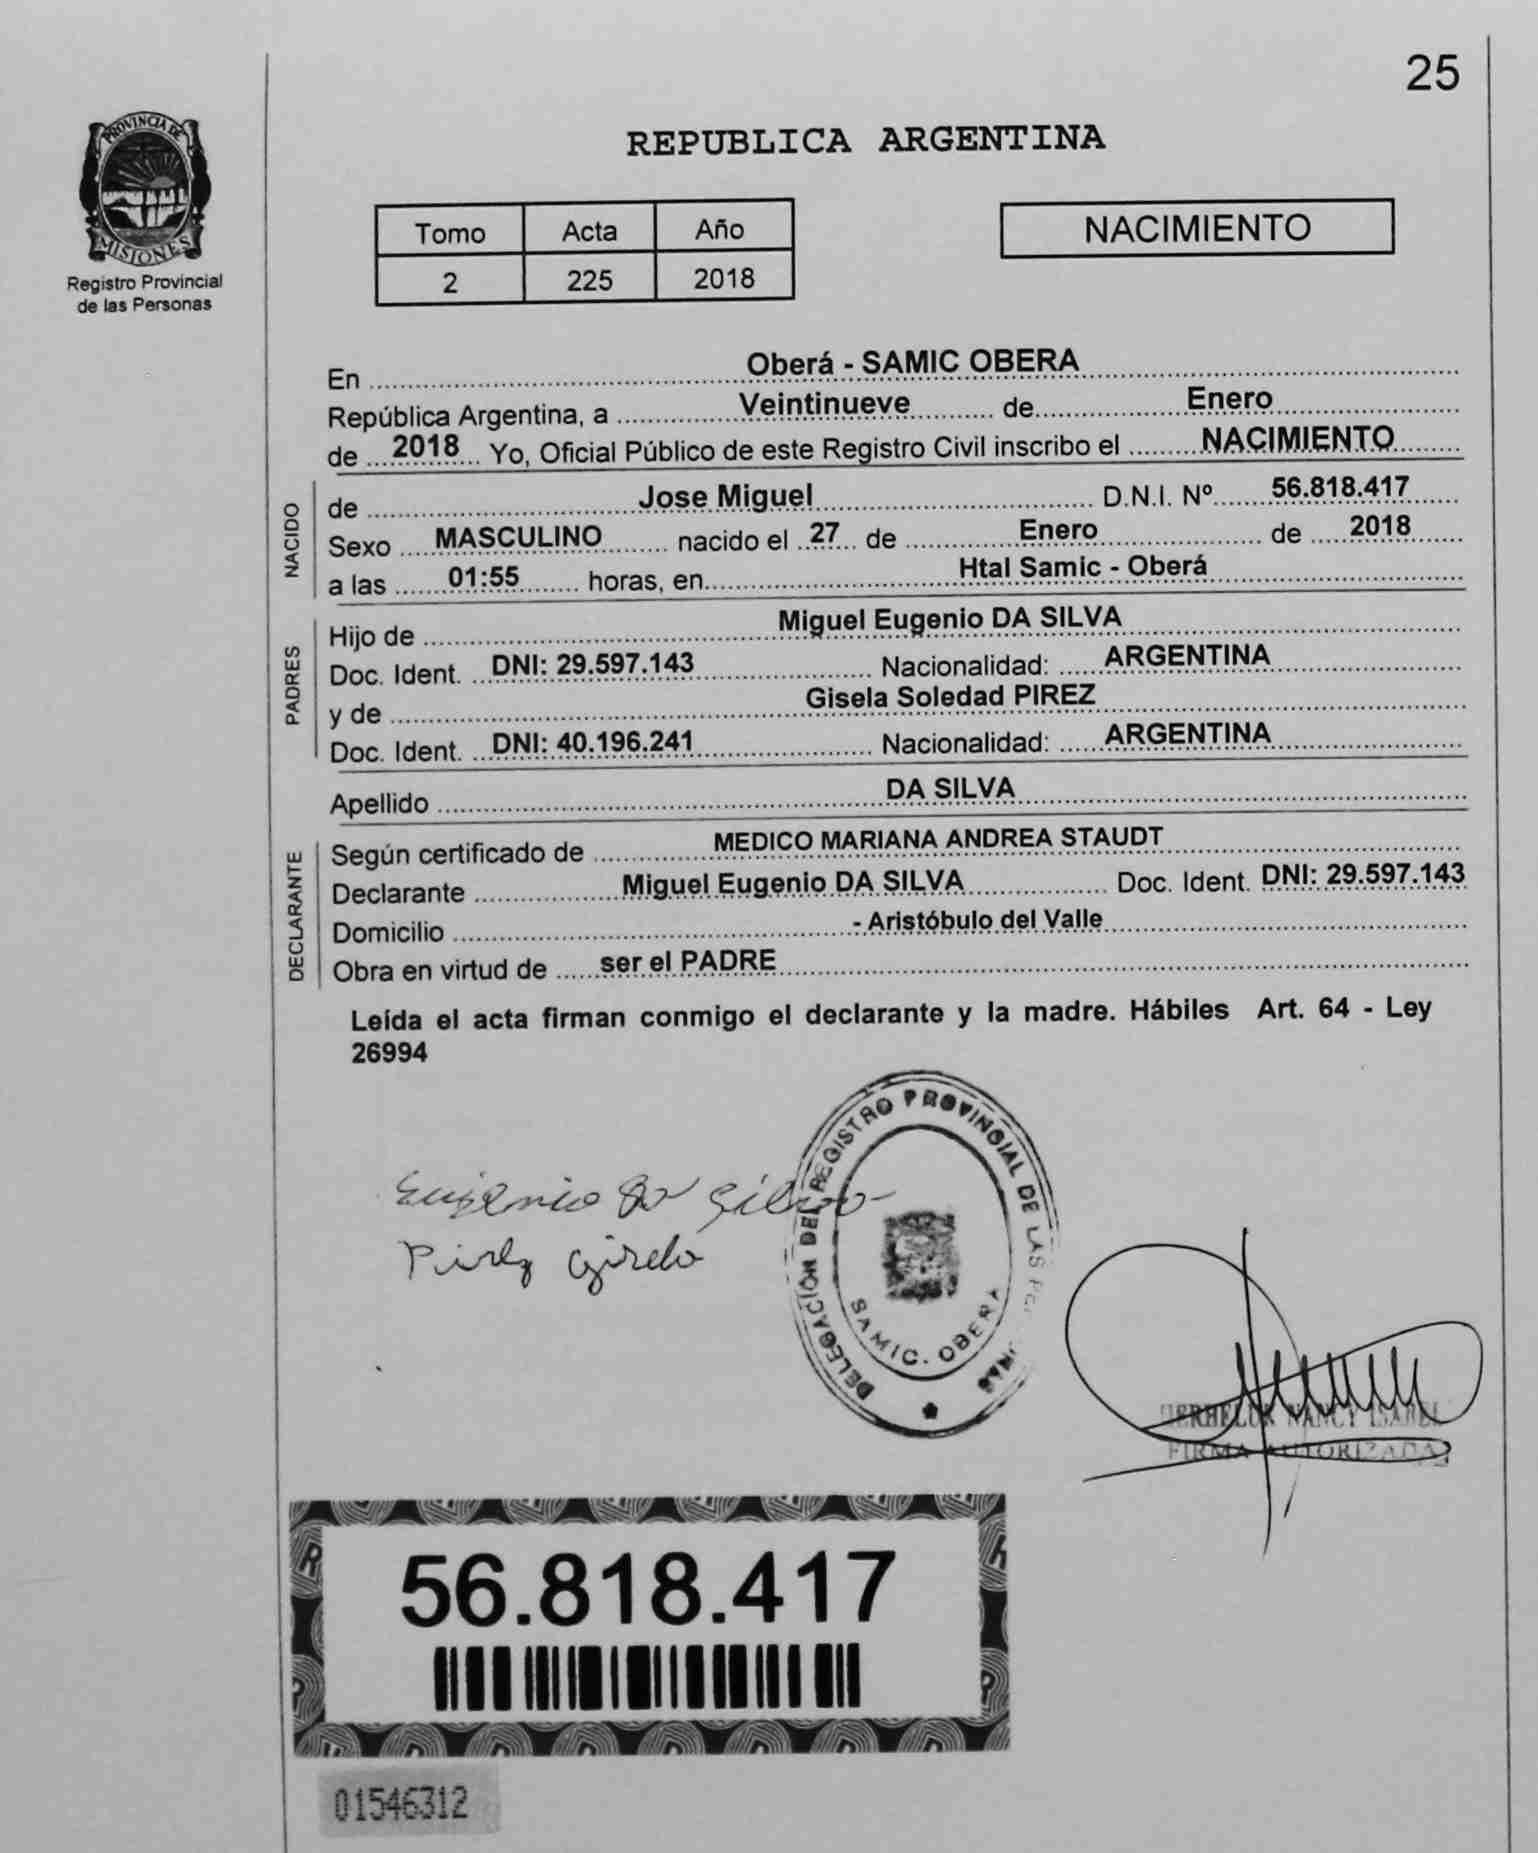 25
PROVINCIA DE
MISIONES
Registro Provincial
de las Personas
REPUBLICA ARGENTINA
Tomo Acta Año
2 225 2018
NACIMIENTO
En Oberá - SAMIC OBERA
República Argentina, a Veintinueve de Enero
de 2018 Yo, Oficial Público de este Registro Civil inscribo el NACIMIENTO
NACIDO
de Jose Miguel D.N.I. Nº 56.818.417
Sexo MASCULINO nacido el 27 de Enero de 2018
a las 01:55 horas, en Htal Samic - Oberá
PADRES
Hijo de Miguel Eugenio DA SILVA
Doc. Ident. DNI: 29.597.143 Nacionalidad: ARGENTINA
y de Gisela Soledad PIREZ
Doc. Ident. DNI: 40.196.241 Nacionalidad: ARGENTINA
Apellido DA SILVA
DECLARANTE
Según certificado de MEDICO MARIANA ANDREA STAUDT
Declarante Miguel Eugenio DA SILVA Doc. Ident. DNI: 29.597.143
Domicilio - Aristóbulo del Valle
Obra en virtud de ser el PADRE
Leída el acta firman conmigo el declarante y la madre. Hábiles Art. 64 - Ley
26994
Eugenio Da Silva
Pirez Gisela
DELEGACIÓN DEL REGISTRO PROVINCIAL DE LAS PERSONAS
SAMIC. OBERA
NANCY ISABEL
FIRMA AUTORIZADA
56.818.417
01546312